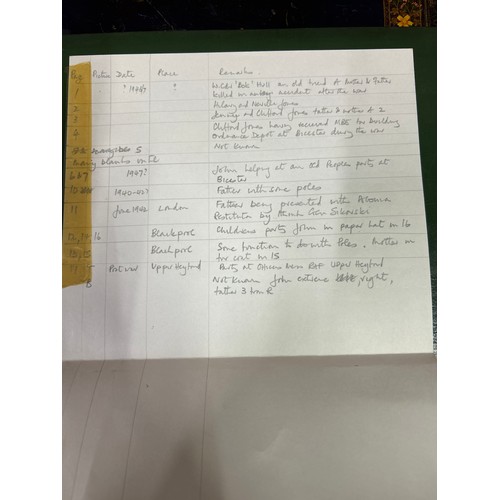 Page Picture Date Place Remarks
Hull an old friend of Mother & Father
1 ? 1940s ? killed in accident after the war
2 Hilary and Neville Jones
3 and Clifford Jones father & mother of 2
4 Clifford Jones having received MBE for building
Ordnance Depot at Bicester during the war
5 Not known
Many blanks until
6 & 7 1947? John helping at an old Peoples party at
Bicester
10 1940-42? Father with some poles
11 June 1942 London Father being presented with Polonia
Restituta by Gen Sikorski
16 Blackpool Childrens party John in paper hat in 16
15 Blackpool Some function to do with Mother in
fur coat in 15
Post war Upper Heyford Party at Officers Mess RAF Upper Heyford
B Not known John extreme right,
father 3 from R